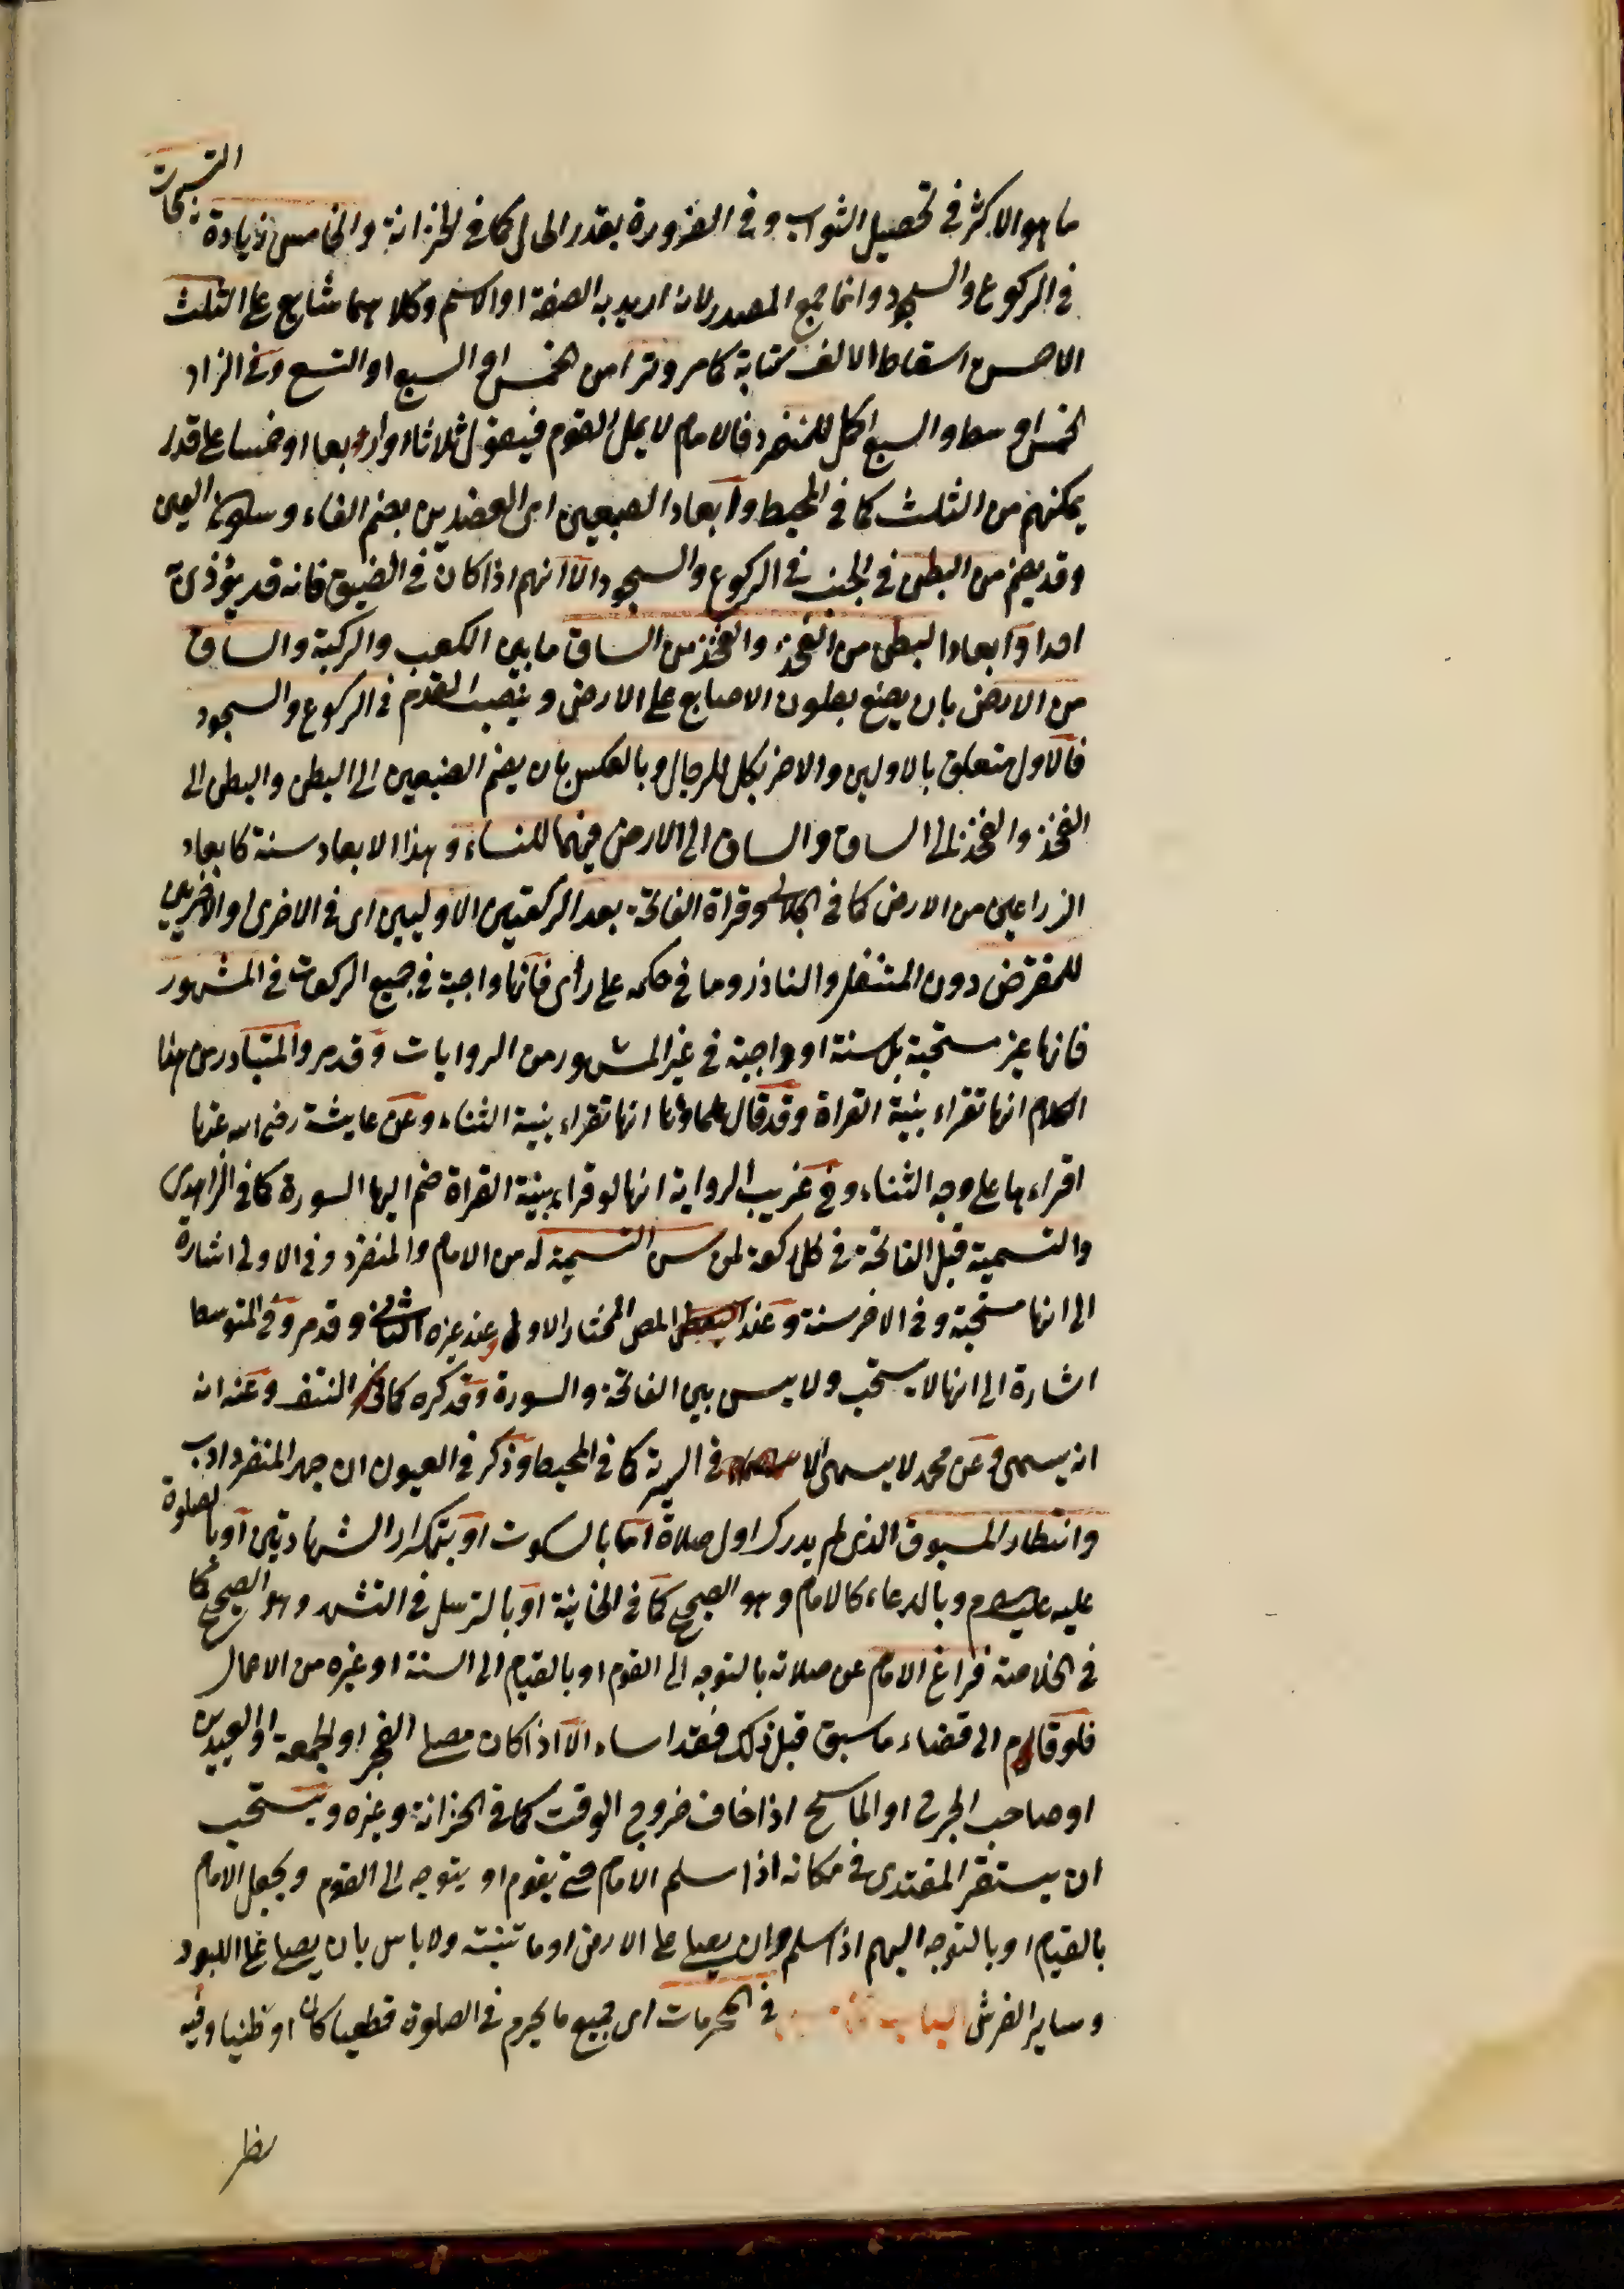 ما هو الاكثر في تحصيل الثواب وفي الضرورة بقدر الحال كما في الخزانة والخامس زيادة التسبيحات
في الركوع والسجود وانما جمع المصدر لانه اريد به الصفة او الاسم وكلاهما شايع على الثلث
الاحسن اسقاط الالف كتابة كما مر وترا من الخمس او السبع او التسع وفي الزاد
الخمس اوسط والسبع اكمل للمنفرد فالامام لا يمل القوم فيقول ثلاثا او اربعا او خمسا على قدر
يمكنهم من الثلث كما في المحيط وابعاد الضبعين اى العضدين بضم الفاء وسكون العين
وقد يضم من البطن في الجنب في الركوع والسجود الا انهم اذا كان في الضيق فانه قد يؤذي به
احدا وابعاد البطن من الفخذ والفخذ من الساق ما بين الكعب والركبة والساق
من الارض بان يضع بطون الاصابع على الارض وينصب القدم في الركوع والسجود
فالاول متعلق بالاولين والاخر بكل للرجال وبالعكس بان يضم الضبعين الى البطن والبطن الى
الفخذ والفخذ الى الساق والساق الى الارض فيهما للنساء وهذا الابعاد سنة كابعاد
الذراعين من الارض كما في الجلابي وقراة الفاتحة بعد الركعتين الاوليين اى في الاخرى والاخريين
للمفترض دون المتنفل والناذر وما في حكمه على رأى فانها واجبة في جميع الركعات في المشهور
فانها غير مستحبة بل سنة او واجبة في غير المشهور من الروايات وقد مر والمتبادر من هذا
الكلام انها تقراء بنية القراة وقد قال علماؤنا انها تقراء بنية الثناء وعن عايشة رضي الله عنها
اقراءها على وجه الثناء وفي غريب الرواية انها لو قراء بنية القراة ضم اليها السورة كما في الزاهدى
والتسمية قبل الفاتحة في كل ركعة لمن سن التسمية له من الامام والمنفرد وفي الاولى اشارة
الى انها مستحبة وفي الاخر سنة وعند المص المختار الاولى وعند غيره الثاني وقد مر وفي المتوسط
اشارة الى انها لا يستحب ولا يسن بين الفاتحة والسورة وقد كره كما في النتف وعنه انه
انه يسمى وعن محمد لا يسمى الا في السرية كما في المحيط وذكر في العيون ان جهر المنفرد ادب
وانتظار المسبوق الذى لم يدرك اول صلاة اما بالسكوت او بتكرار الشهادتين او بالصلوة
عليه عليه السلام وبالدعاء كالامام وهو الصحيح كما في الخانية او بالترسل في التشهد وهو الصحيح كما
في الخلاصة فراغ الامام عن صلاته بالتوجه الى القوم او بالقيام الى السنة او غيره من الاعمال
فلو قام الى قضاء ما سبق قبل ذلك فقد اساء الا اذا كان مصلي الفجر او الجمعة او العيدين
او صاحب الجرح او الماسح اذا خاف خروج الوقت كما في الخزانة وغيره ويستحب
ان يستقر المقتدى في مكانه اذا سلم الامام حتى يقوم او يتوجه الى القوم ويجعل الامام
بالقيام او بالتوجه اليهم اذا سلم وان يصلي على الارض او ما تنبته ولا باس بان يصلي على اللبود
وساير الفرش الباب في المحرمات اى جميع ما يحرم في الصلوة قطعيا كان او ظنيا وفيه
نظر